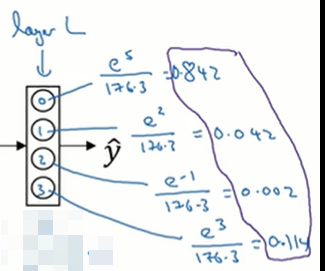 layer L
0 e^5/176.3 = 0.842
1 e^2/176.3 = 0.042
ŷ
2 e^-1/176.3 = 0.002
3 e^3/176.3 = 0.114